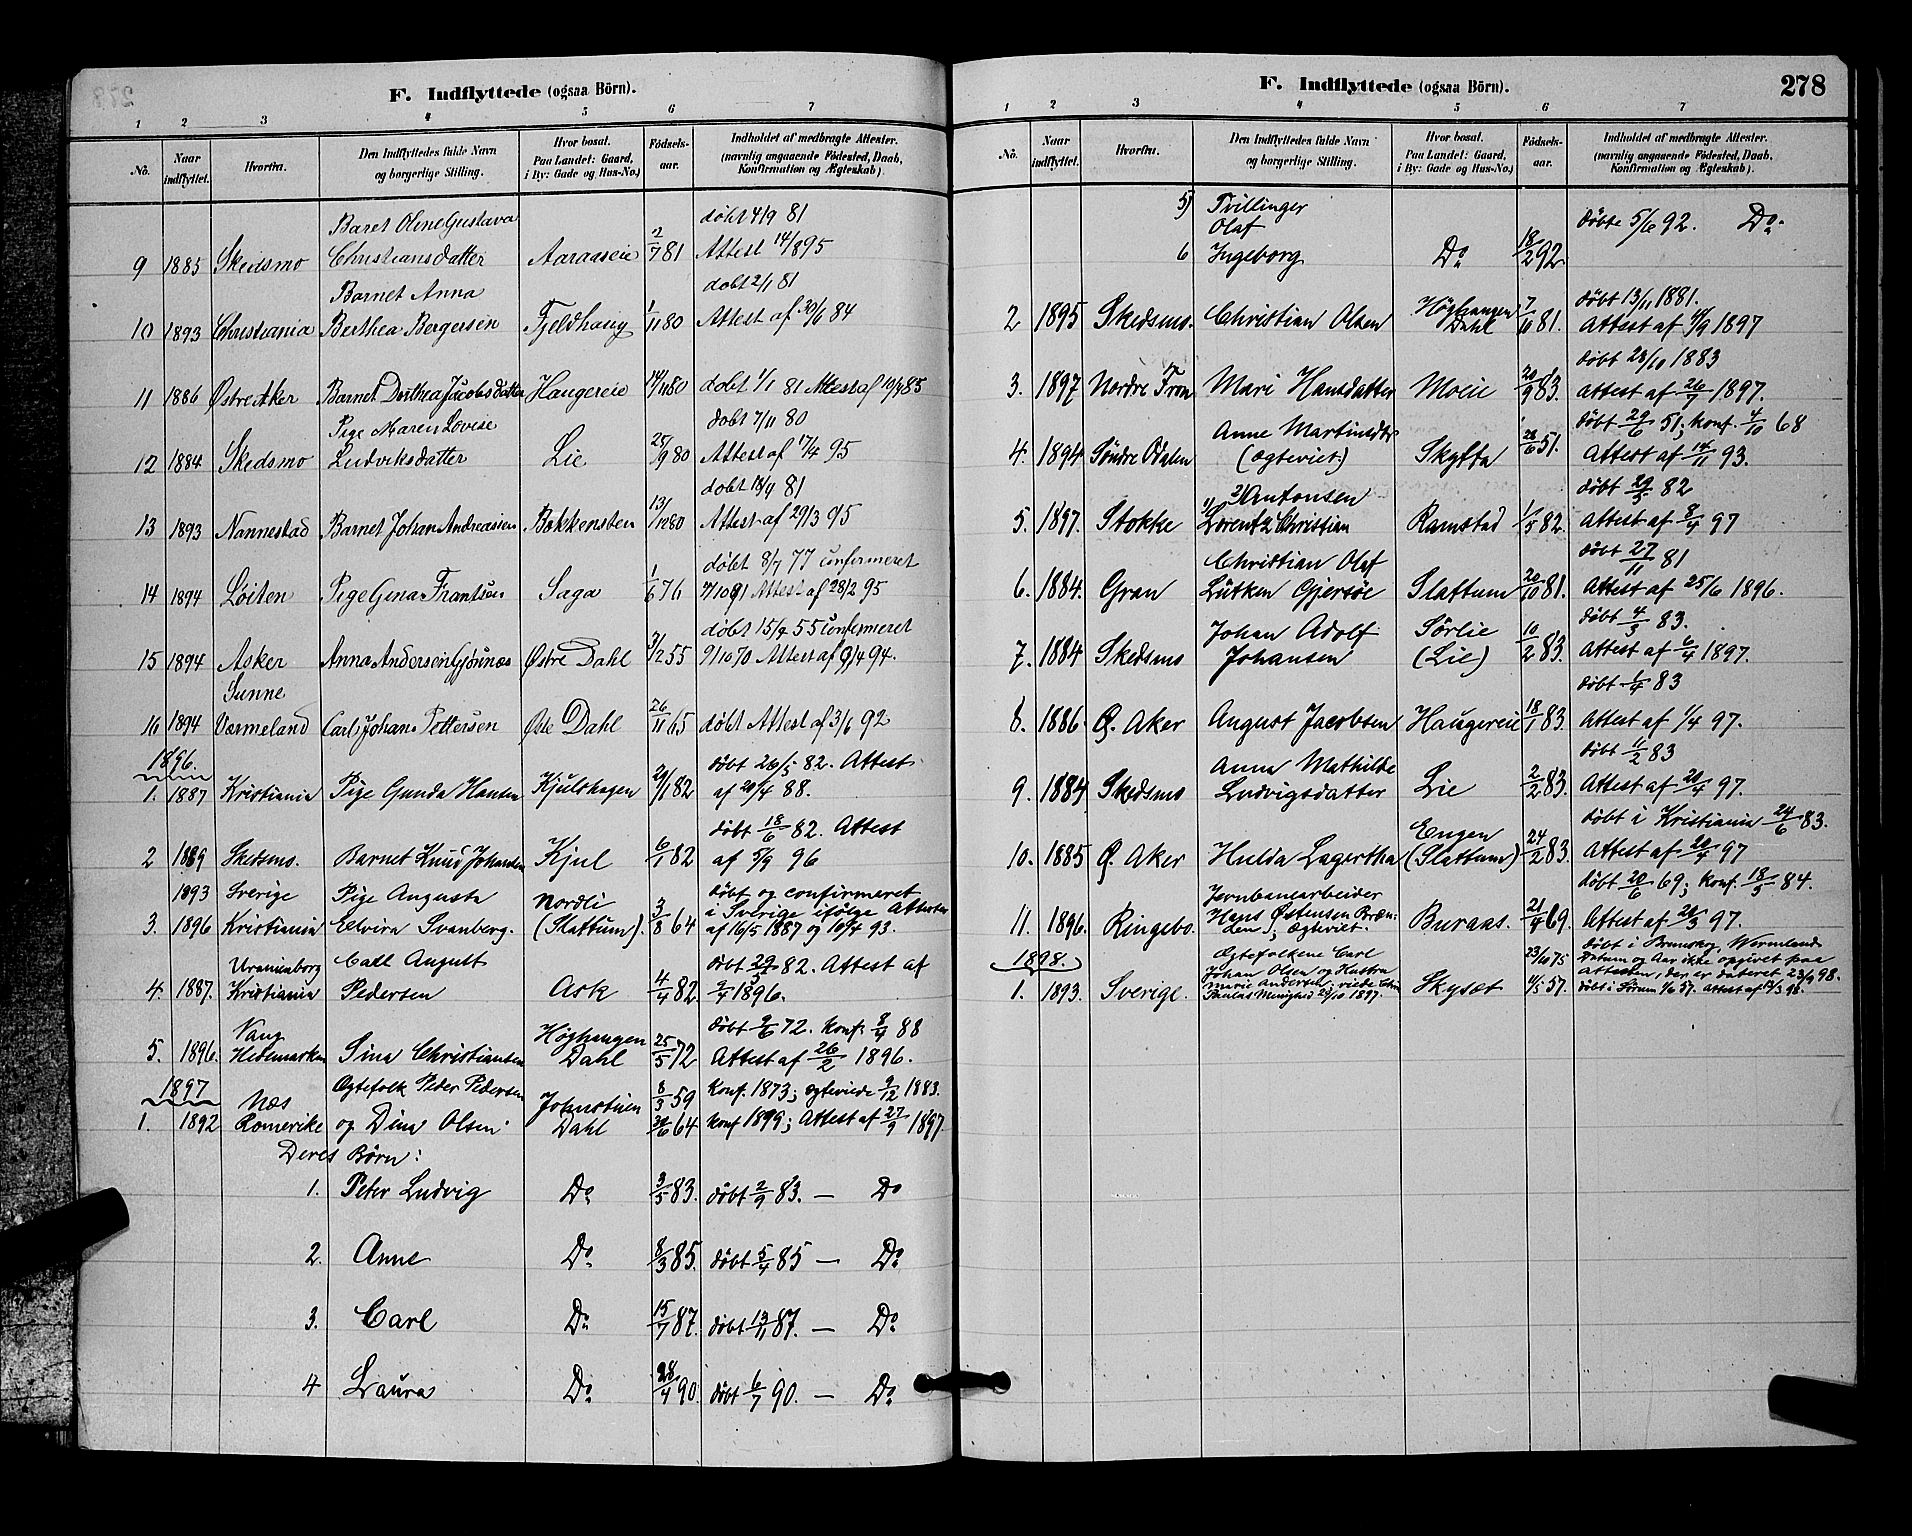 F. Indflyttede (ogsaa Börn).
1 2 3 4 5 6 7
No. Naar indflyttet. Hvorfra. Den Indflyttedes fulde Navn og borgerlige Stilling. Hvor bosat. Paa Landet: Gaard, i By: Gade og Hus-No.) Födsels-aar. Indholdet af medbragte Attester. (navnlig angaaende Födested, Daab, Konfirmation og Ægteskab).
Baret Oline Gustava døbt 4/9 81
9 1885 Skedsmo Christiansdatter Aaraaseie 2/7 81 Attest 14/8 95
Barnet Anna døbt 2/1 81
10 1893 Christiania Berthea Bergersen Fjeldhaug 1/11 80 Attest af 30/6 84
11 1886 Østre Aker Barnet Dorthea Jacobsdatter Haugereie 14/11 80 døbt 1/1 81 Attest af 10/4 85
Pige Maren Lovise døbt 7/11 80
12 1884 Skedsmo Ludviksdatter Lie 25/9 80 Attest af 17/4 95
døbt 18/4 81
13 1893 Nannestad Barnet Johan Andreassen Bakkensten 13/12 80 Attest af 29/3 95
døbt 8/7 77 confirmeret
14 1894 Løiten Pige Gina Frantsen Saga 1/6 76 4/10 91 Attest af 28/2 95
døbt 15/2 55 confirmeret
15 1894 Asker Anna Andersen Gjønnæs Østre Dahl 7/2 55 9/10 70 Attest af 9/4 94.
Sunne
16 1894 Værmeland Carl Johan Pettersen Øste Dahl 26/11 65 døbt Attest af 3/6 92
1896. døbt 26/5 82. Attest
1. 1887 Kristiania Pige Gunda Hansen Kjulshagen 29/1 82 af 20/4 88.
døbt 18/6 82. Attest
2 1889 Skedsmo. Barnet Knud Johansen Kjul 6/1 82 af 3/9 96
1893 Sverige Pige Augusta Nordli døbt og confirmeret
i Sverige ifølge Attester
3. 1896 Kristiania Elvira Svanberg. (Slattum). 3/8 64 af 16/5 1887 og 10/4 93.
Uranienborg Carl August døbt 29/5 82. Attest af
4. 1887. Kristiania Pedersen Ask 4/4 82 9/4 1896.
Vang Høghaugen døbt 9/6 72. Konf. 8/4 88
5. 1896. Hedemarken Sina Christiansen Dahl 25/5 72 Attest af 26/2 1896.
1897 Næs Ægtefolk Peder Pedersen Johnstuen 8/3 59 Konf. 1873; ægteviede 9/12 1883.
1. 1892 Romerike og Dina Olsen. Dahl 20/6 64 Konf 1899; Attest af 27/9 1897.
Deres Børn:
1. Peter Ludvig Do 3/5 83. døbt 2/9 83. — Do
2. Anne Do 8/3 85. døbt 5/4 85 — Do
3. Carl Do 15/7 87. døbt 13/11 87. — Do
4 Laura Do 28/4 90 døbt 6/7 90. — Do
F. Indflyttede (ogsaa Börn). 278
1 2 3 4 5 6 7
No. Naar indflyttet. Hvorfra. Den Indflyttedes fulde Navn og borgerlige Stilling. Hvor bosat. Paa Landet: Gaard, i By: Gade og Hus-No.) Födsels-aar. Indholdet af medbragte Attester. (navnlig angaaende Födested, Daab, Konfirmation og Ægteskab).
5) Tvillinger
Olaf døbte 5/6 92. Do
6 Ingeborg Do 18/2 92
Høghaugen døbt 13/11 1881.
2 1895 Skedsmo. Christian Olsen Dahl 7/10 81. Attest af 4/9 1897
døbt 28/10 1883
3. 1897 Nordre Fron Mari Hansdatter Moeie 20/9 83. attest af 26/7 1897.
Anne Martinsdtr døbt 29/6 51; Konf. 4/10 68
4. 1894. Søndre Odalen (ægteviet.) Skytta 28/6 51. Attest af 14/11 93.
1) 2) Antonsen døbt 29/5 82
5. 1897. Stokke Lorentz Christian Ramstad 1/5 82. Attest af 8/4 97
Christian Olaf døbt 27/11 81
6. 1884. Gran Lütken Gjersøe Slattum 20/10 81. Attest af 25/6 1896.
Johan Adolf Sørlie døbt 4/3 83.
7. 1884 Skedsmo Johansen (Lie) 10/2 83. Attest af 6/4 1897.
døbt 1/4 83
8. 1886. Ø. Aker August Jacobsen Haugereie 18/1 83. Attest af 1/4 97.
Anna Mathilde døbt 11/2 83
9. 1884 Skedsmo Ludvigsdatter Lie 2/2 83. Attest af 20/4 97.
Engen døbt i Kristiania 24/6 83.
10. 1885 Ø. Aker Hulda Lagertha (Slattum) 24/2 83. Attest af 20/4 97
Jernbanearbeider døbt 20/6 69; Konf. 18/5 84.
11. 1896. Ringebo. Hans Østensen Brænden; ægteviet. Buraas. 21/4 69. Attest af 20/3 97.
1898. Ægtefolkene Carl 23/10 75 døbt i Brunskog, Wermland
Johan Olsen og Hustru Datum og Aar ikke opgivet paa
Marie Andersen; viede Attesten, der er dateret 23/9 98.
1. 1893. Sverige. Paulus Menighed 20/10 1897. Skyset 4/5 57. døbt i Sørum 1/6 57. attest af 12/3 98.